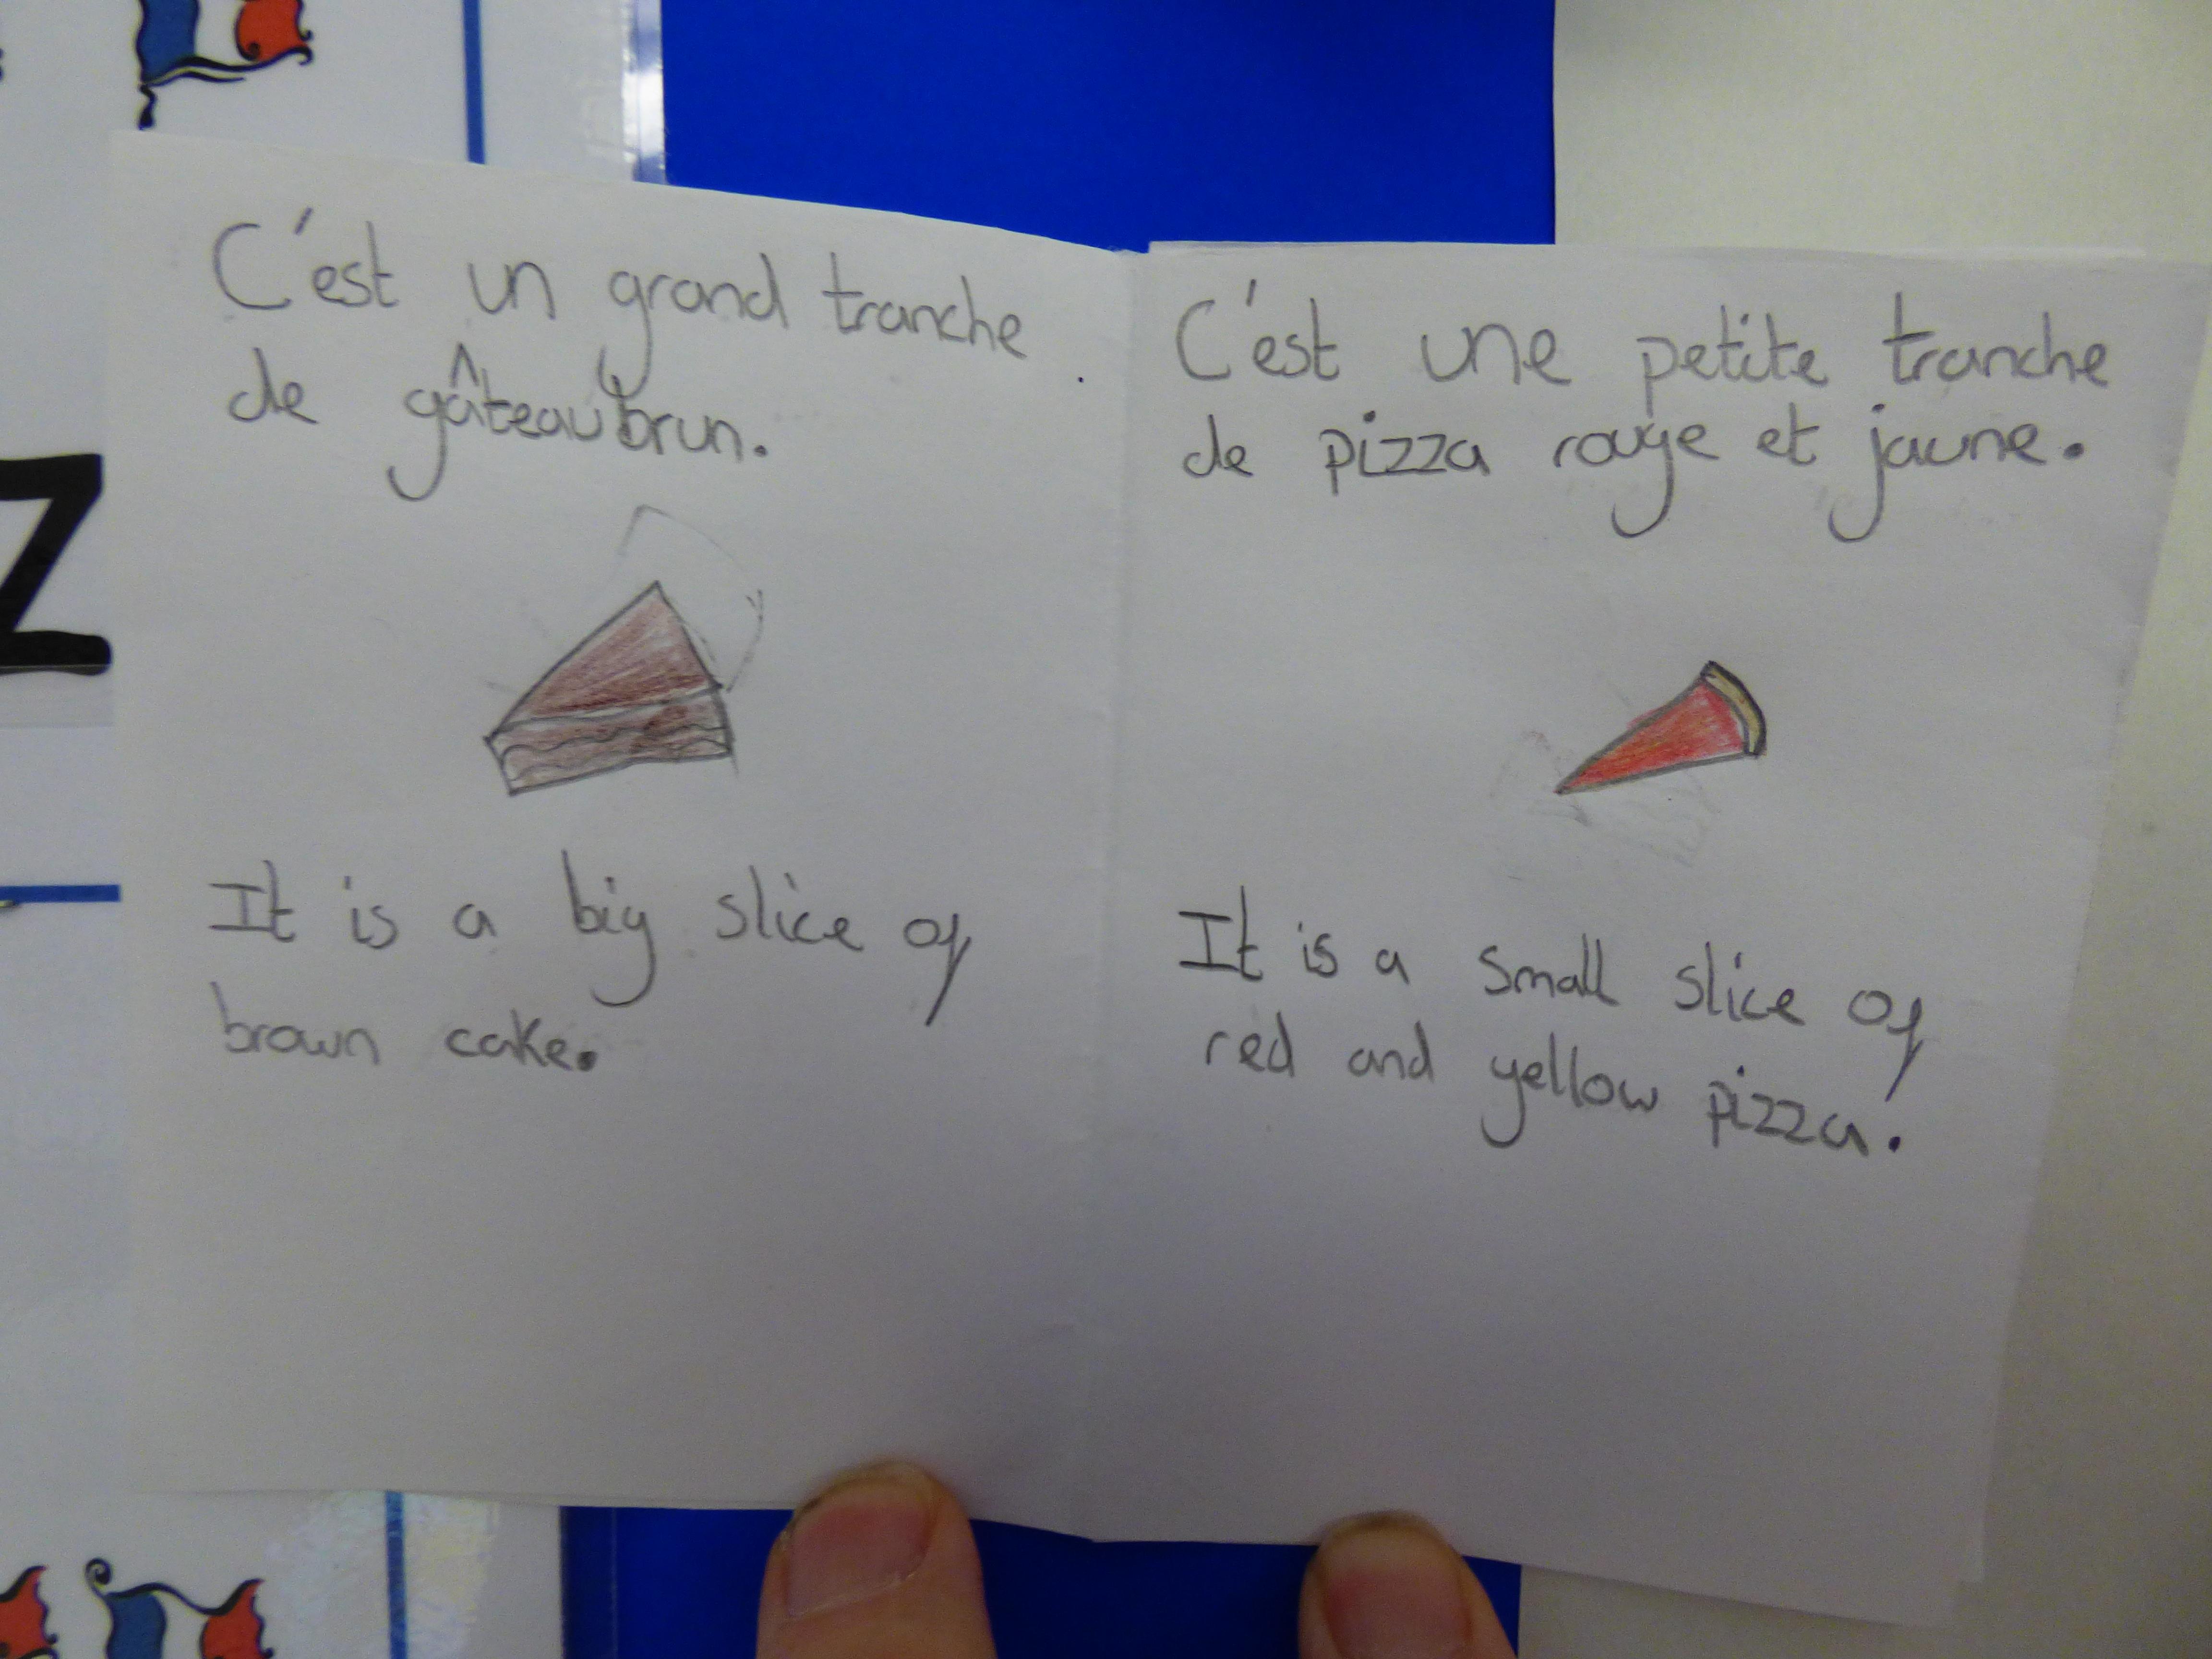 C'est un grand tranche
de gâteau brun.
It is a big slice of
brown cake.
C'est une petite tranche
de pizza rouge et jaune.
It is a small slice of
red and yellow pizza.
Z